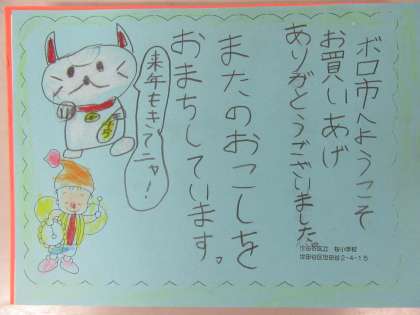 ボロ市へようこそ
お買いあげ
ありがとうございました。
またのおこしを
おまちしています。
来年もきてニャ！
世田谷区立 桜小学校
世田谷区世田谷2-4-15